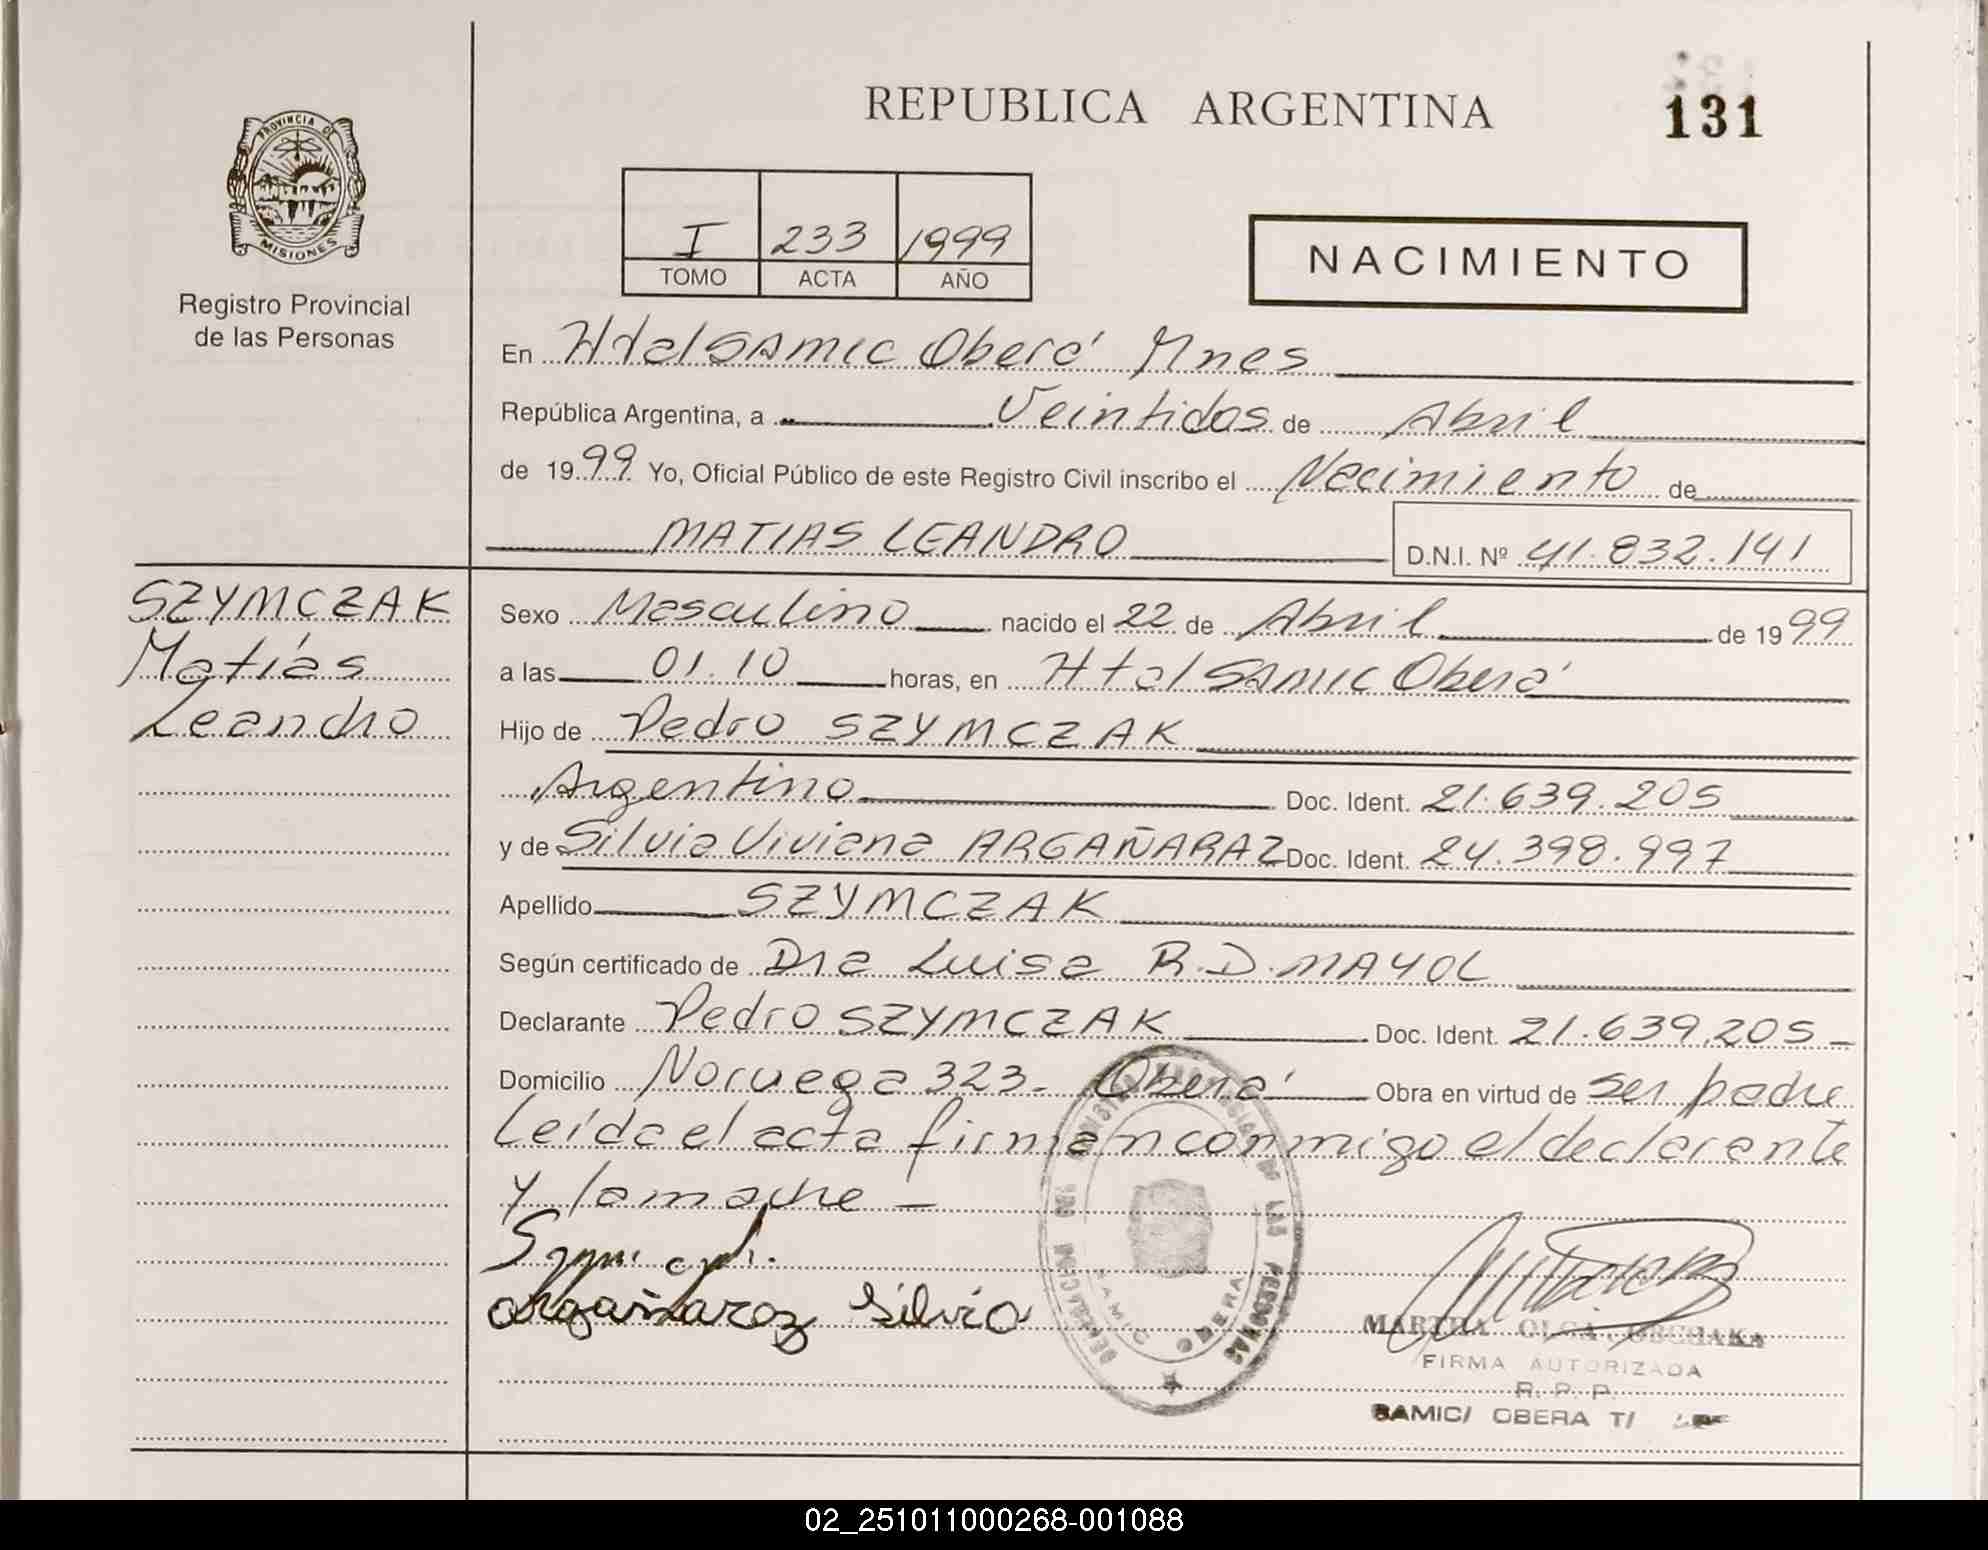 REPUBLICA ARGENTINA
131
PROVINCIA DE
MISIONES
Registro Provincial
de las Personas
I 233 1999
TOMO ACTA AÑO
NACIMIENTO
En Htal SAMIC Oberá Mnes
República Argentina, a Veintidos de Abril
de 1999 Yo, Oficial Público de este Registro Civil inscribo el Nacimiento de
MATIAS LEANDRO D.N.I. Nº 41.832.141
SZYMCZAK
Matías
Leandro
Sexo Masculino nacido el 22 de Abril de 1999
a las 01.10 horas, en Htal SAMIC Oberá
Hijo de Pedro SZYMCZAK
Argentino Doc. Ident. 21.639.205
y de Silvia Viviana ARGAÑARAZ Doc. Ident. 24.398.997
Apellido SZYMCZAK
Según certificado de Dra Luisa R.D. MAYOL
Declarante Pedro SZYMCZAK Doc. Ident. 21.639.205
Domicilio Noruega 323- Oberá Obra en virtud de ser padre
Leída el acta firman conmigo el declarante
y la madre -
Argañaraz Silvia
DELEGACION DEL REGISTRO PROVINCIAL DE LAS PERSONAS
SAMIC OBERA
MARTHA OLGA
FIRMA AUTORIZADA
R. P. P.
SAMIC/ OBERA T/
02_251011000268-001088